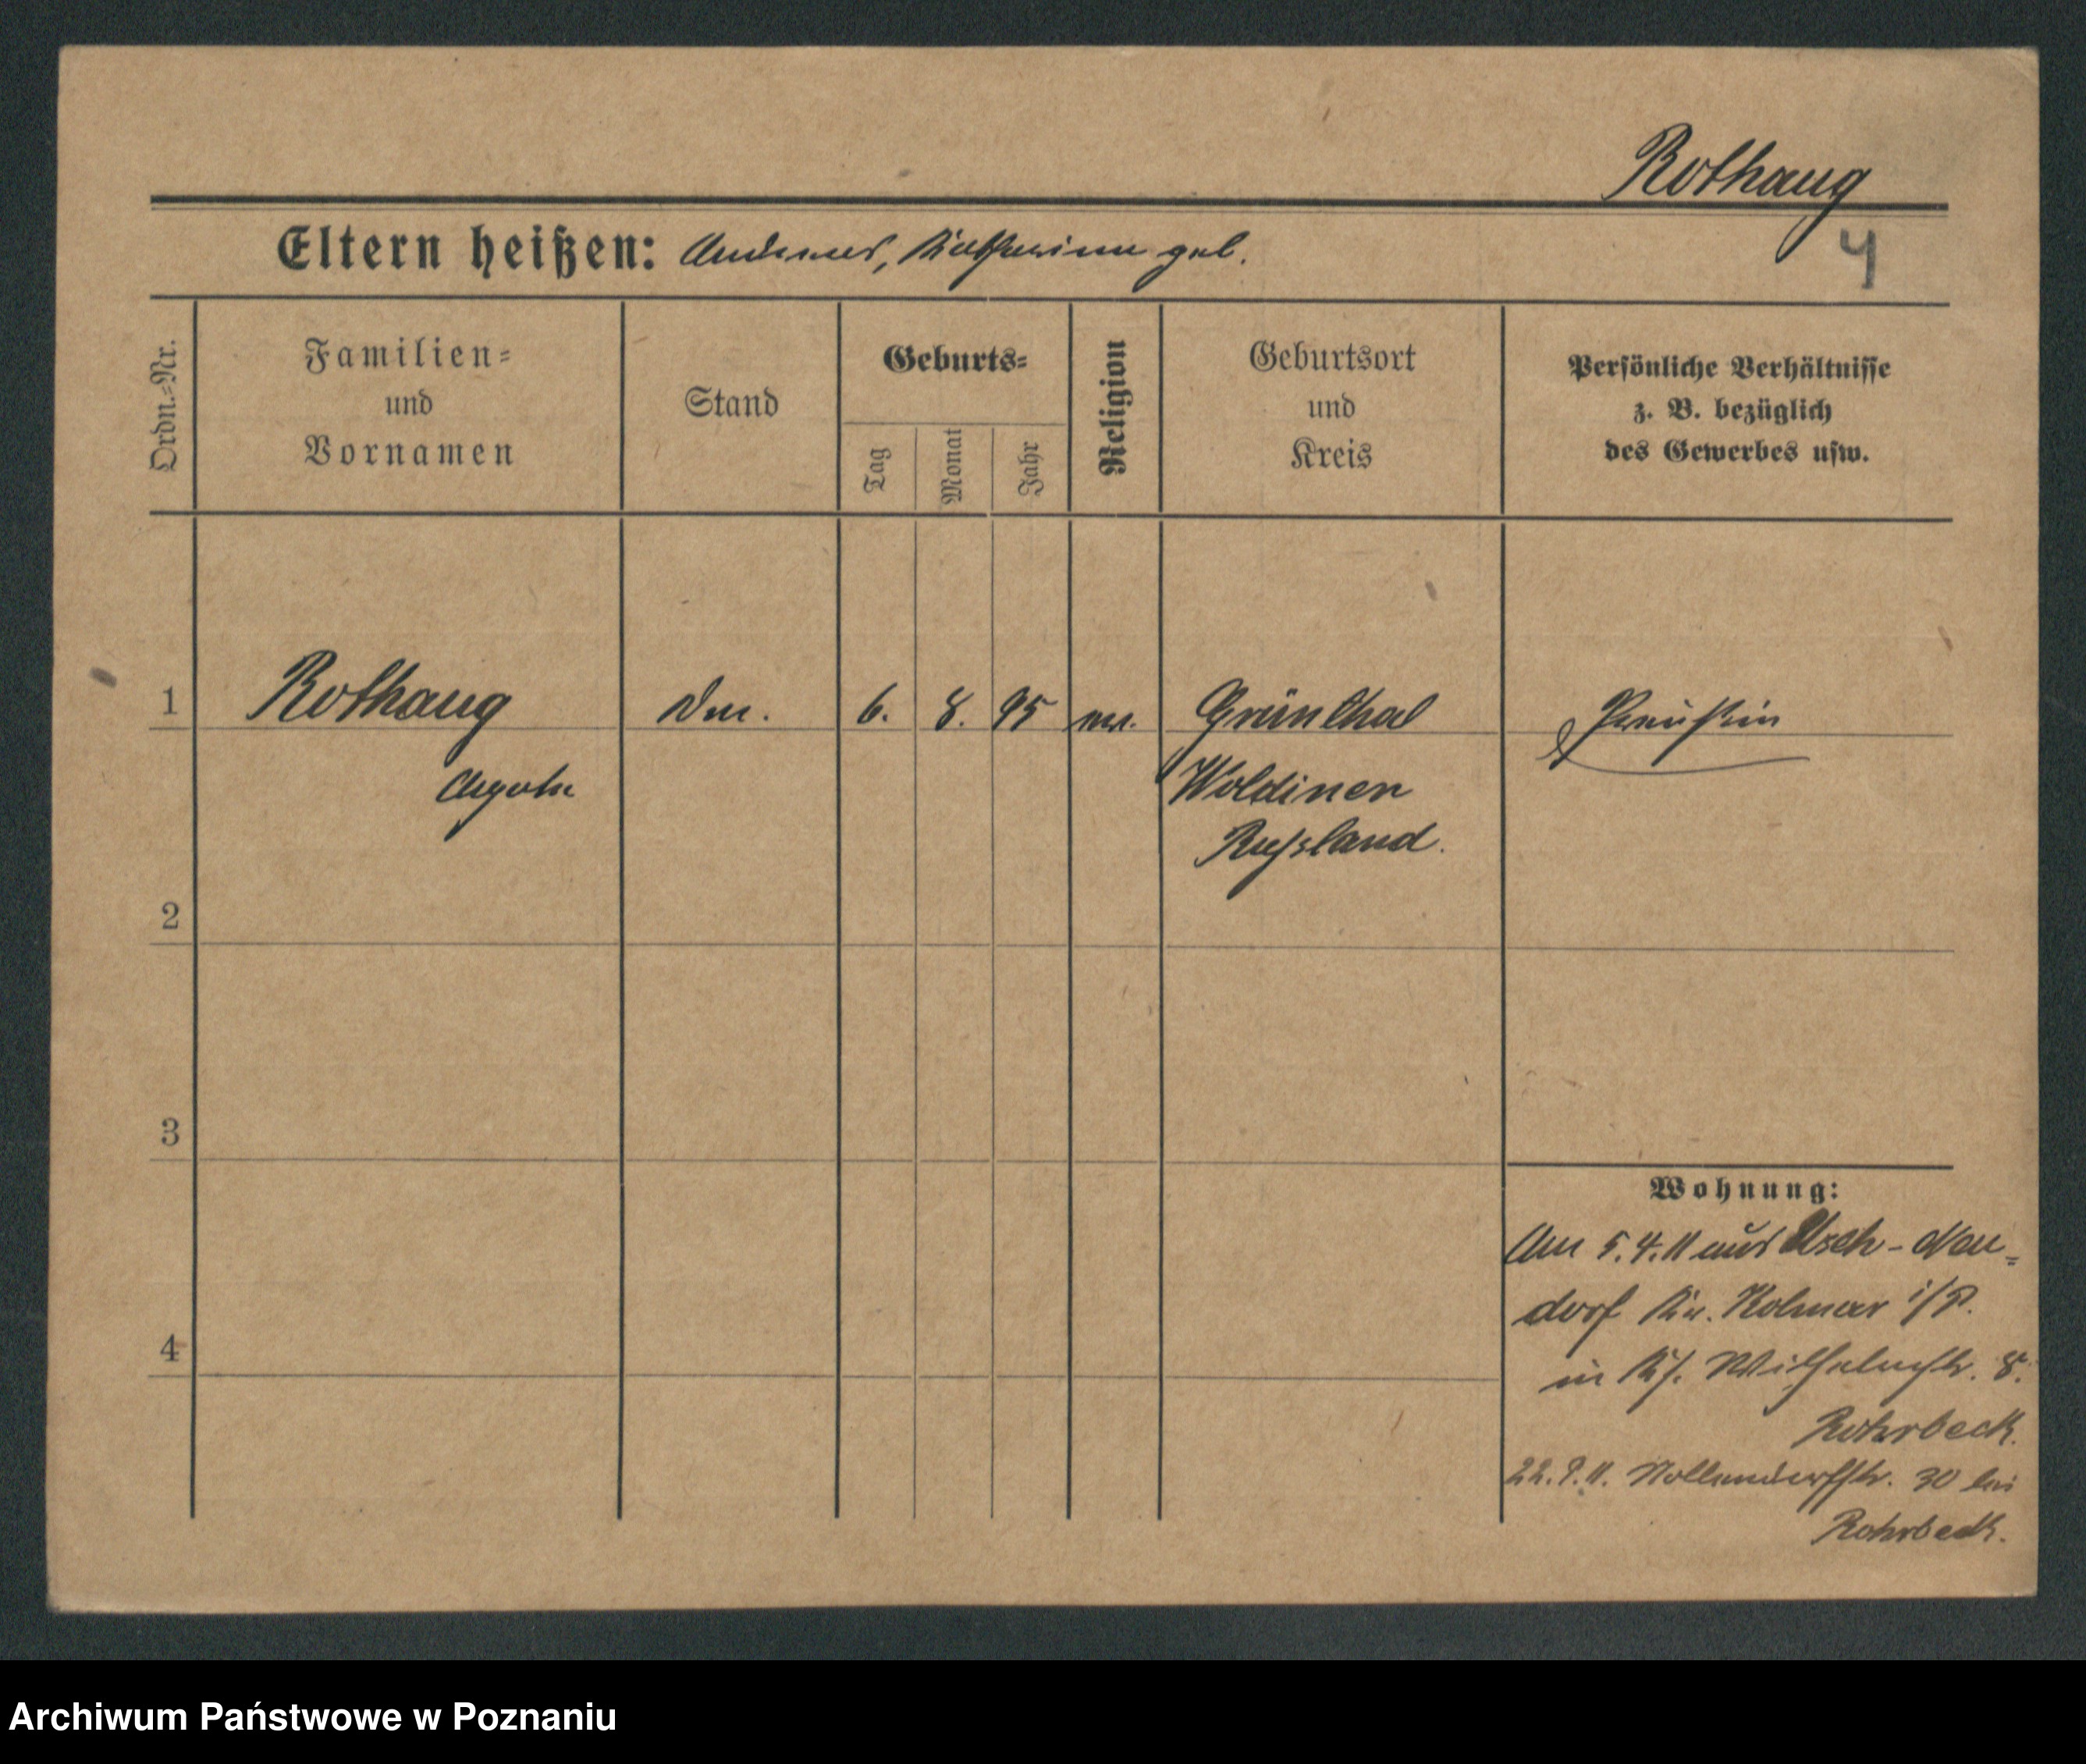 Rothaug
Eltern heißen: Andreas, Katharina geb.
4
Ordn.=Nr.
Familien=
und
Vornamen
Stand
Geburts=
Tag
Monat
Jahr
Religion
Geburtsort
und
Kreis
Persönliche Verhältnisse
z. B. bezüglich
des Gewerbes usw.
1 Rothaug 6. 8. 95 Grünthal
Woldinen
Russland.
2
3
4
Wohnung:
Am 5.4.11 aus Usch-Neu=
dorf Kr. Kolmar i/P.
in Wilhelmstr. 8.
Rohrbeck.
22.9.11. Nollendorfstr. 30 bei
Rohrbeck.
Archiwum Państwowe w Poznaniu